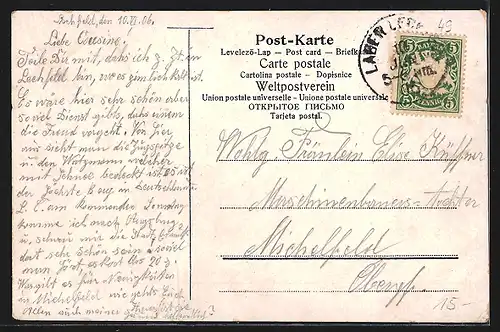 Lechfeld, den 10. VI. 06.
Liebe Cousine!
Teile Dir mit, dass ich z. Zt. in
Lechfeld bin, wo es ziemlich kalt ist.
Es wäre hier sehr schön aber
so viel Dienst gibts, dass einem
die Freud vergeht. Von hier
aus sieht man die Zugspitze
u. den Watzmann welcher
mit Schnee bedeckt ist. Es ist
der höchste Berg in Deutschland.
Am kommenden Sonntag
komme ich nach Augsburg
u. schau mir die Stadt an
dort sehr schön sein soviel
man hört, es kost Bier 20
Was gibt es für Neuigkeiten
in Michelfeld wie gehts Euch
allen auch meiner
Post-Karte
Levelező-Lap — Post card — Briefk
Carte postale
Cartolina postale - Dopisnice
Weltpostverein
Union postale universelle - Unione postale universale
ОТКРЫТОЕ ПИСЬМО
Tarjeta postal.
LAGER LECHF
BAYERN
5 5
PFENNIG
49
Wohlg. Fräulein Elise Küffner
Maschinenbauers-Tochter
Michelfeld
Oberpf.
15-